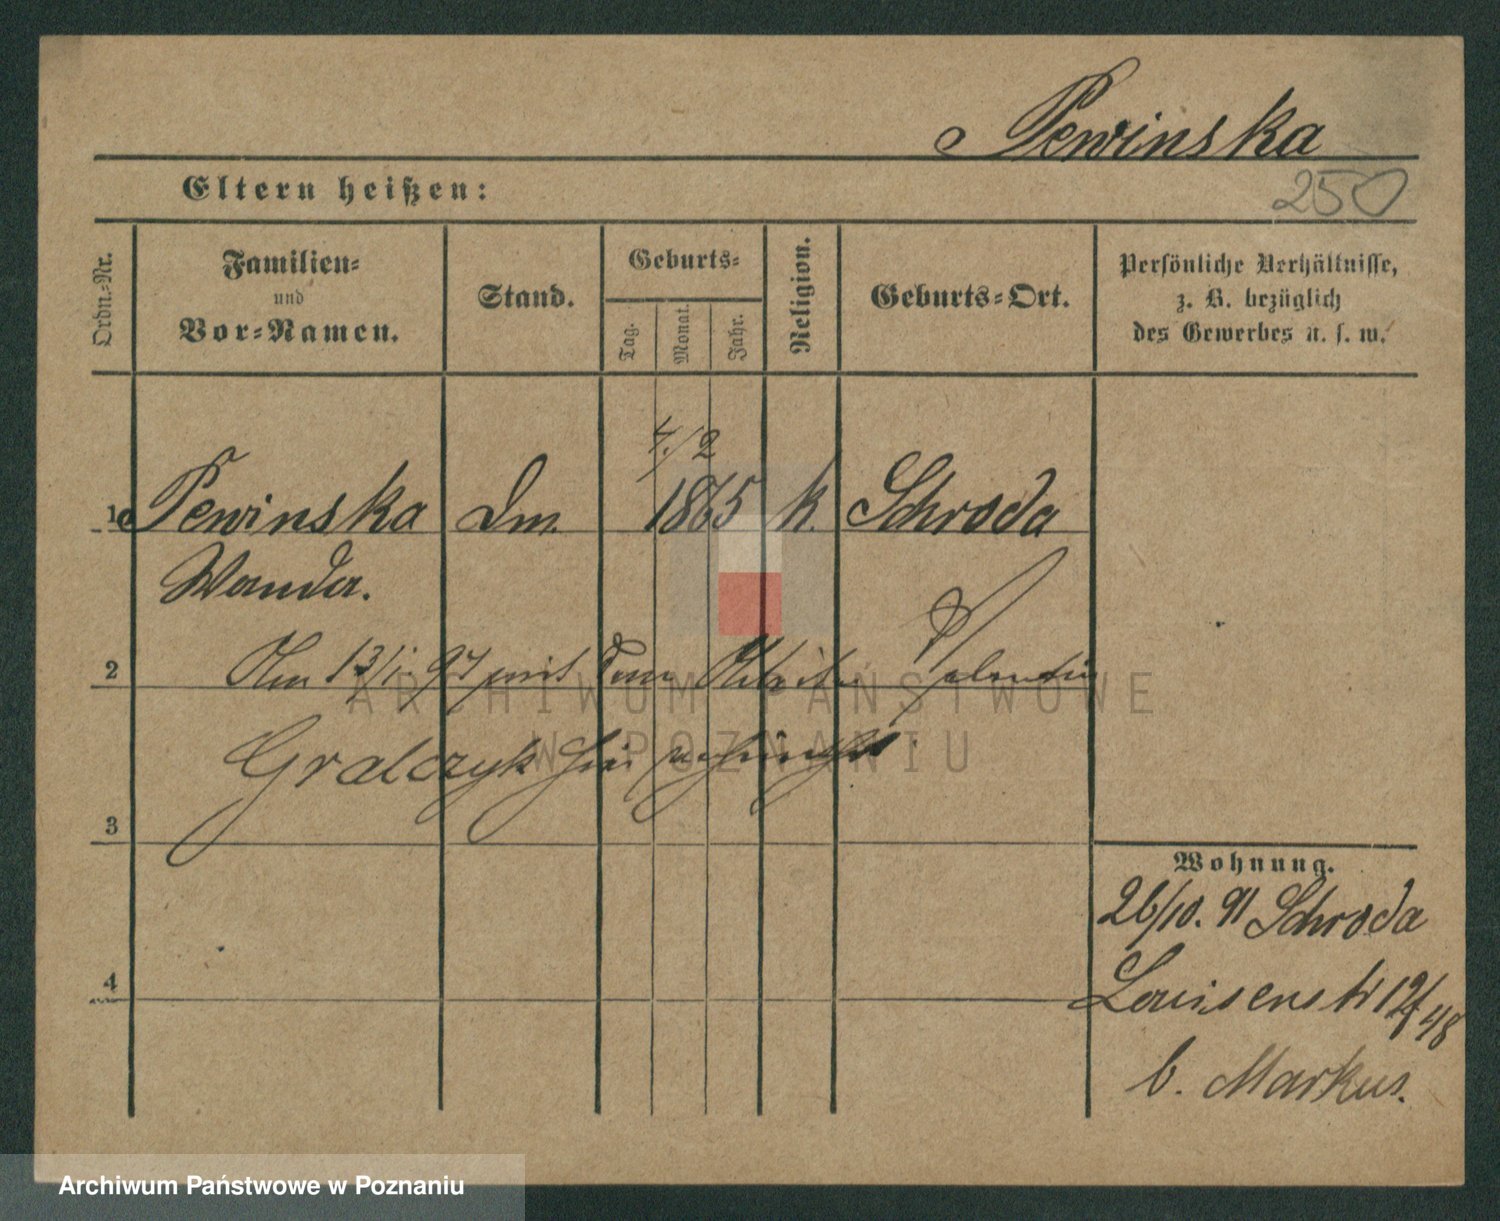 Pewinska
Eltern heißen:
250
Ordn.-Nr.
Familien-
und
Vor-Namen.
Stand.
Geburts-
Tag.
Monat.
Jahr.
Religion.
Geburts-Ort.
Persönliche Verhältnisse,
z. B. bezüglich
des Gewerbes u. s. w.
4./2
1 Pewinska Dm. 1865 k. Schroda
Wanda.
2 Am 13/1 97 mit dem Arbeiter Valentin
ARCHIWUM PAŃSTWOWE
W POZNANIU
Gralczyk hier
3
Wohnung.
26/10. 91 Schroda
4
Louisenstr 19
b. Markus.
Archiwum Państwowe w Poznaniu